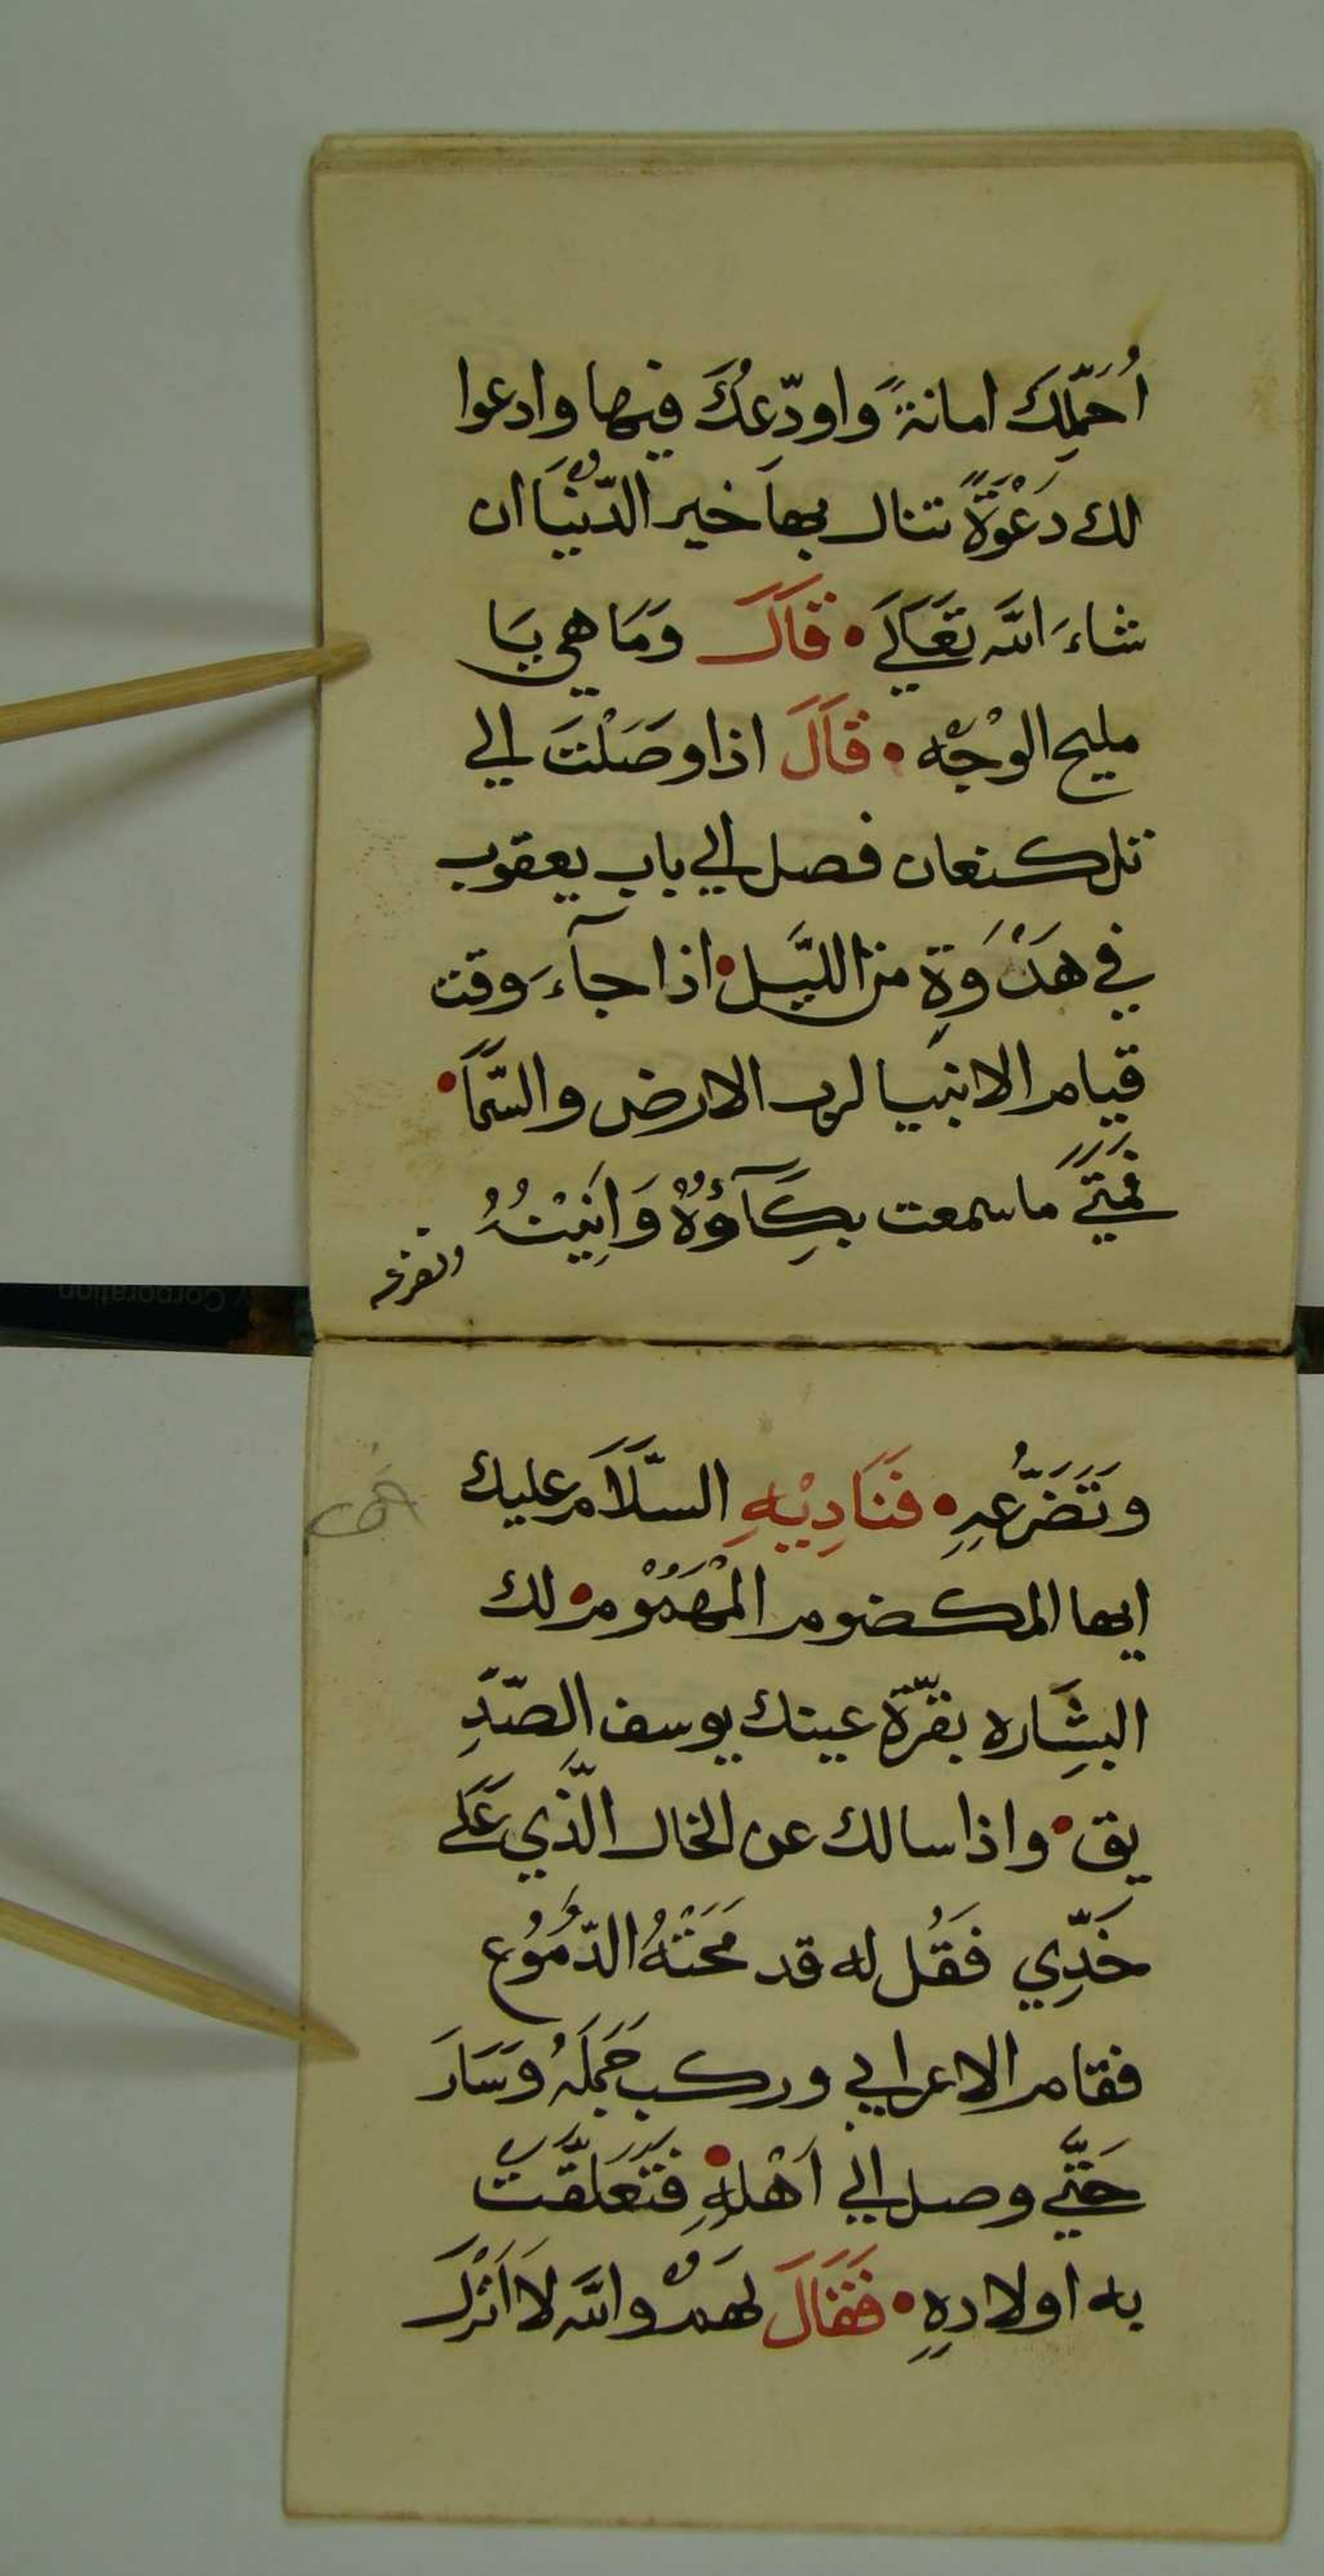 اُحَمِّلِكَ امانةً واودّعكَ فيها وادعوا
لك دَعْوَةً تنال بها خير الدّنْيَا ان
شاءَ الله تَعَالَي • قَالَ وَمَا هي يَا
مليح الوْجْه • قَالَ اذا وصَلْتَ الي
تل كنعان فصل الي باب يعقوب
في هَدْوَةٍ من اللَّيل • اذا جآءَ وقت
قيام الانبيا لرب الارض والسّمَا •
فَمَتَي ما سمعت بكَآؤُهُ وَانِيْنُهُ
وتضرعه
وَتَضَرُّعِهِ • فَنَادِيْهِ السَّلَامر عليك
ايها المكضوم المْهْمُوْم • لك
البشَاره بقرّة عينك يوسف الصّدِ
يق • واذا سالك عن الخال الَّذي عَلَي
خَدِّي فَقُل له قد مَحَتْهُ الدّمُوُع
فقام الاعرابي وركب جَمَلَهُ وَسَارَ
حَتَّي وصل الي اَهْلِهِ • فَتَعَلَّقَتْ
به اولادهِ • فَقَالَ لهَمْ والله لَا اَنْزلَ